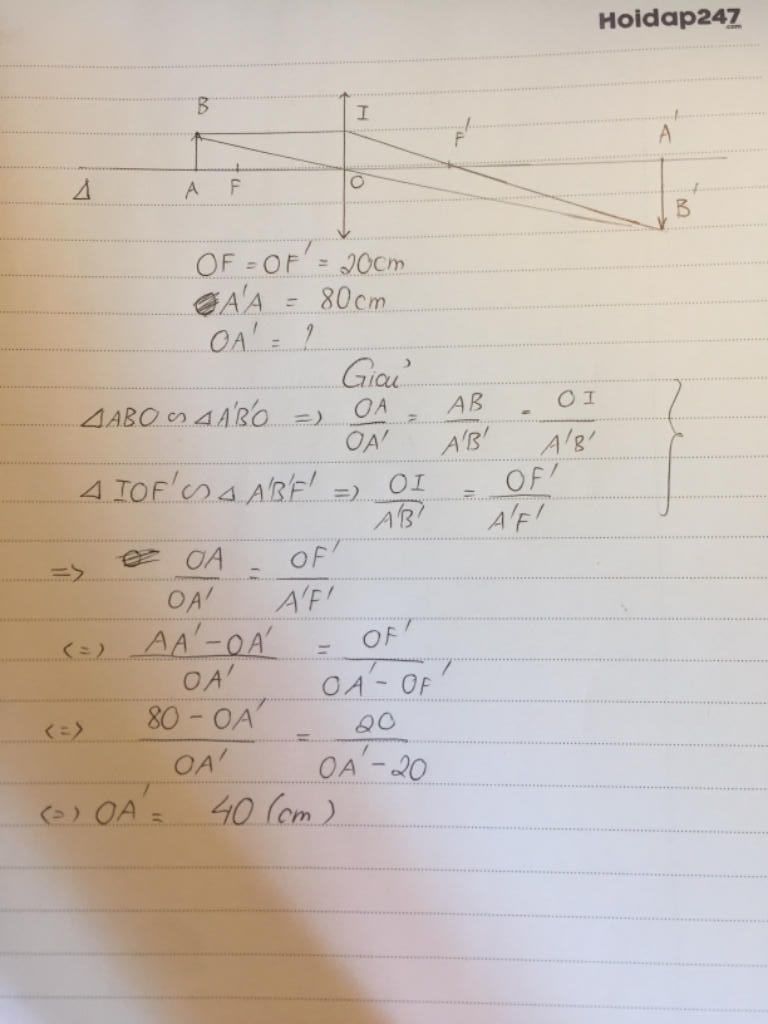 Hoidap247
.com
B I F' A'
Δ A F O B'
OF = OF' = 20cm
A'A = 80cm
OA' = ?
Giải
ΔABO ∽ ΔA'B'O => OA/OA' = AB/A'B' = OI/A'B'
Δ IOF' ∽ Δ A'B'F' => OI/A'B' = OF'/A'F'
=> OA/OA' = OF'/A'F'
(=) AA' - OA'/OA' = OF'/OA' - OF'
<=> 80 - OA'/OA' = 20/OA' - 20
(=) OA' = 40 (cm)